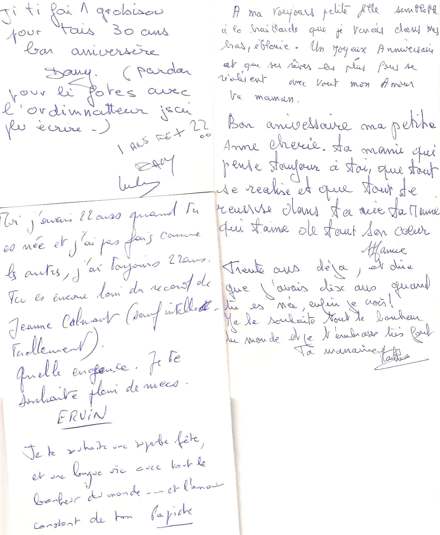 Ji ti fai 1 grobisou
pour tais 30 ans
bon aniversère
Dany. (pardon
pour li fotes avec
l'ordinnatteur jsai
plu écrire-)
1 AUS
22
DANY
Moi j'avais 22 ans quand tu
es née et j'ai pas fait comme
les autres, j'ai toujours 22 ans.
Tu es encore loin du record de
Jeanne Calmant (sauf intellec-
tuellement).
Quelle engeance. Je te
souhaite plein de mecs.
ERVIN
Je te souhaite une superbe fête,
et une longue vie avec tout le
bonheur du monde --- et l'amour
constant de ton Papiche
A ma toujours petite fille semblable
à la braillarde que je tenais dans mes
bras, éblouie. Un joyeux Anniversaire
et que tes rêves les plus purs se
réalisent avec tout mon Amour
Ta maman.
Bon anivessaire ma petite
Anne cherie. ta mamie qui
pense toujour à toi, que tout
se realise et que tout te
reussise dans ta vie ta Mamie
qui t'aime de tout son cœur
Mamie
Trente ans déjà, et dire
que j'avais dix ans quand
tu es née, enfin je crois!
Je te souhaite tout le bonheur
du monde et je t'embrasse très fort
Ta marraine